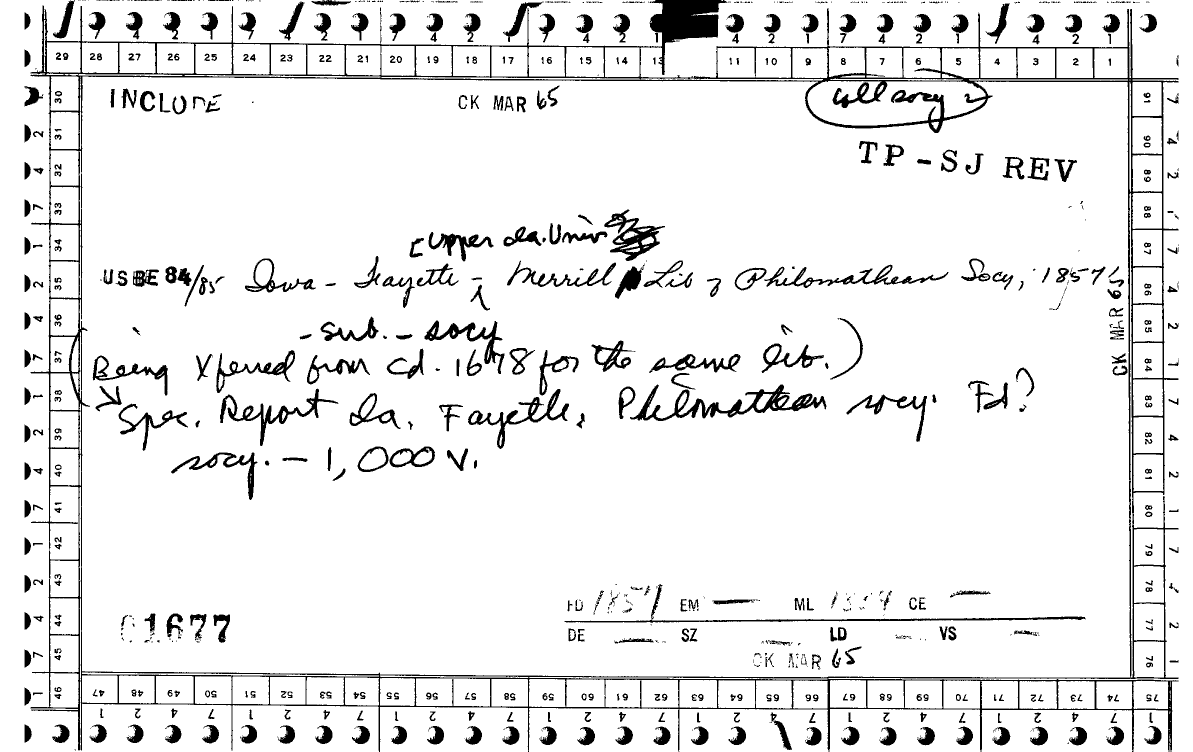 7 4 2 1 7 4 2 1 7 4 2 1 7 4 2 1 4 2 1 7 4 2 1 7 4 2 1
29 28 27 26 25 24 23 22 21 20 19 18 17 16 15 14 13 11 10 9 8 7 6 5 4 3 2 1
INCLUDE CK MAR 65 coll socy
TP-SJ REV
[Upper Ia. Univ
USBE 84/85 Iowa - Fayette - Merrill Lib of Philomathean Socy, 1857
- sub. - socy
(Being Xferred from cd. 1678 for the same lib.)
Spec. Report Ia. Fayette. Philomathean socy. Fd?
socy. - 1,000 v.
CK MAR 65
FD 1857 EM — ML 1359 CE —
01677
DE — SZ — LD — VS —
CK MAR 65
30 31 32 33 34 35 36 37 38 39 40 41 42 43 44 45 46
91 90 89 88 87 86 85 84 83 82 81 80 79 78 77 76
47 48 49 50 51 52 53 54 55 56 57 58 59 60 61 62 63 64 65 66 67 68 69 70 71 72 73 74 75
1 2 4 7 1 2 4 7 1 2 4 7 1 2 4 7 1 2 4 7 1 2 4 7 1 2 4 7 1